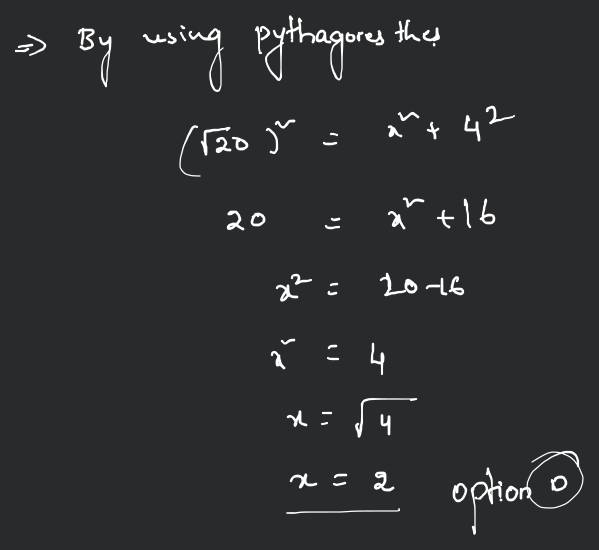 ⇒ By using pythagores
(√20)² = x² + 4²
20 = x² + 16
x² = 20-16
x² = 4
x = √4
x = 2 option D